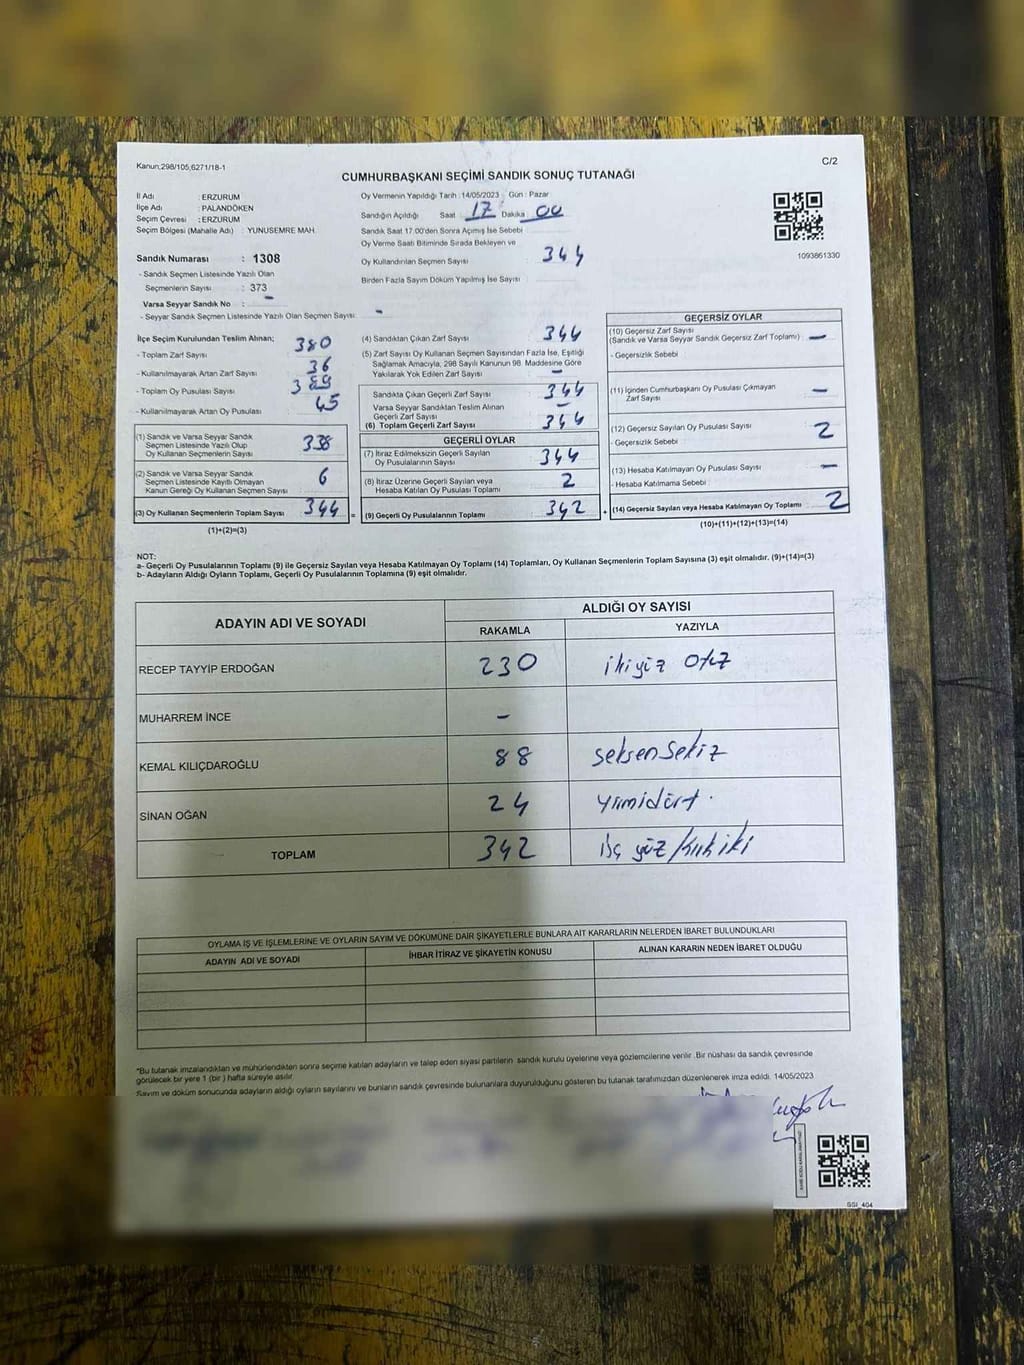 Kanun;298/105,6271/18-1
C/2
CUMHURBAŞKANI SEÇİMİ SANDIK SONUÇ TUTANAĞI
İl Adı : ERZURUM
İlçe Adı : PALANDÖKEN
Seçim Çevresi : ERZURUM
Seçim Bölgesi (Mahalle Adı) : YUNUSEMRE MAH.
Sandık Numarası : 1308
- Sandık Seçmen Listesinde Yazılı Olan
Seçmenlerin Sayısı : 373
Varsa Seyyar Sandık No : -
- Seyyar Sandık Seçmen Listesinde Yazılı Olan Seçmen Sayısı: -
Oy Vermenin Yapıldığı Tarih : 14/05/2023 Gün : Pazar
Sandığın Açıldığı Saat : 17 Dakika : 00
Sandık Saat 17.00'den Sonra Açmış İse Sebebi
Oy Verme Saati Bitiminde Sırada Bekleyen ve
Oy Kullandırılan Seçmen Sayısı : 344
Birden Fazla Sayım Döküm Yapılmış İse Sayısı :
1093861330
İlçe Seçim Kurulundan Teslim Alınan;
- Toplam Zarf Sayısı : 380
- Kullanılmayarak Artan Zarf Sayısı : 36
- Toplam Oy Pusulası Sayısı :
- Kullanılmayarak Artan Oy Pusulası : 45
(1) Sandık ve Varsa Seyyar Sandık
Seçmen Listesinde Yazılı Olup
Oy Kullanan Seçmenlerin Sayısı : 338
(2) Sandık ve Varsa Seyyar Sandık
Seçmen Listesinde Kayıtlı Olmayan
Kanun Gereği Oy Kullanan Seçmen Sayısı : 6
(3) Oy Kullanan Seçmenlerin Toplam Sayısı : 344 =
(1)+(2)=(3)
(4) Sandıktan Çıkan Zarf Sayısı : 344
(5) Zarf Sayısı Oy Kullanan Seçmen Sayısından Fazla İse, Eşitliği
Sağlamak Amacıyla, 298 Sayılı Kanunun 98. Maddesine Göre
Yakılarak Yok Edilen Zarf Sayısı : -
Sandıkta Çıkan Geçerli Zarf Sayısı : 344
Varsa Seyyar Sandıktan Teslim Alınan
Geçerli Zarf Sayısı : -
(6) Toplam Geçerli Zarf Sayısı : 344
GEÇERLİ OYLAR
(7) İtiraz Edilmeksizin Geçerli Sayılan
Oy Pusulalarının Sayısı : 344
(8) İtiraz Üzerine Geçerli Sayılan veya
Hesaba Katılan Oy Pusulası Toplamı : 2
(9) Geçerli Oy Pusulalarının Toplamı : 342 +
GEÇERSİZ OYLAR
(10) Geçersiz Zarf Sayısı
(Sandık ve Varsa Seyyar Sandık Geçersiz Zarf Toplamı) : -
- Geçersizlik Sebebi :
(11) İçinden Cumhurbaşkanı Oy Pusulası Çıkmayan
Zarf Sayısı : -
(12) Geçersiz Sayılan Oy Pusulası Sayısı : 2
- Geçersizlik Sebebi :
(13) Hesaba Katılmayan Oy Pusulası Sayısı : -
- Hesaba Katılmama Sebebi :
(14) Geçersiz Sayılan veya Hesaba Katılmayan Oy Toplamı : 2
(10)+(11)+(12)+(13)=(14)
NOT:
a- Geçerli Oy Pusulalarının Toplamı (9) ile Geçersiz Sayılan veya Hesaba Katılmayan Oy Toplamı (14) Toplamları, Oy Kullanan Seçmenlerin Toplam Sayısına (3) eşit olmalıdır. (9)+(14)=(3)
b- Adayların Aldığı Oyların Toplamı, Geçerli Oy Pusulalarının Toplamına (9) eşit olmalıdır.
ADAYIN ADI VE SOYADI
ALDIĞI OY SAYISI
RAKAMLA YAZIYLA
RECEP TAYYİP ERDOĞAN 230 ikiyüz otuz
MUHARREM İNCE -
KEMAL KILIÇDAROĞLU 88 seksensekiz
SİNAN OĞAN 24 yirmidört.
TOPLAM 342 üç yüz kırk iki
OYLAMA İŞ VE İŞLEMLERİNE VE OYLARIN SAYIM VE DÖKÜMÜNE DAİR ŞİKAYETLERLE BUNLARA AİT KARARLARIN NELERDEN İBARET BULUNDUKLARI
ADAYIN ADI VE SOYADI İHBAR İTİRAZ VE ŞİKAYETİN KONUSU ALINAN KARARIN NEDEN İBARET OLDUĞU
*Bu tutanak imzalandıktan ve mühürlendikten sonra seçime katılan adayların ve talep eden siyasi partilerin sandık kurulu üyelerine veya gözlemcilerine verilir .Bir nüshası da sandık çevresinde
görülecek bir yere 1 (bir ) hafta süreyle asılır.
Sayım ve döküm sonucunda adayların aldığı oyların sayılarını ve bunların sandık çevresinde bulunanlara duyurulduğunu gösteren bu tutanak tarafımızdan düzenlenerek imza edildi. 14/05/2023